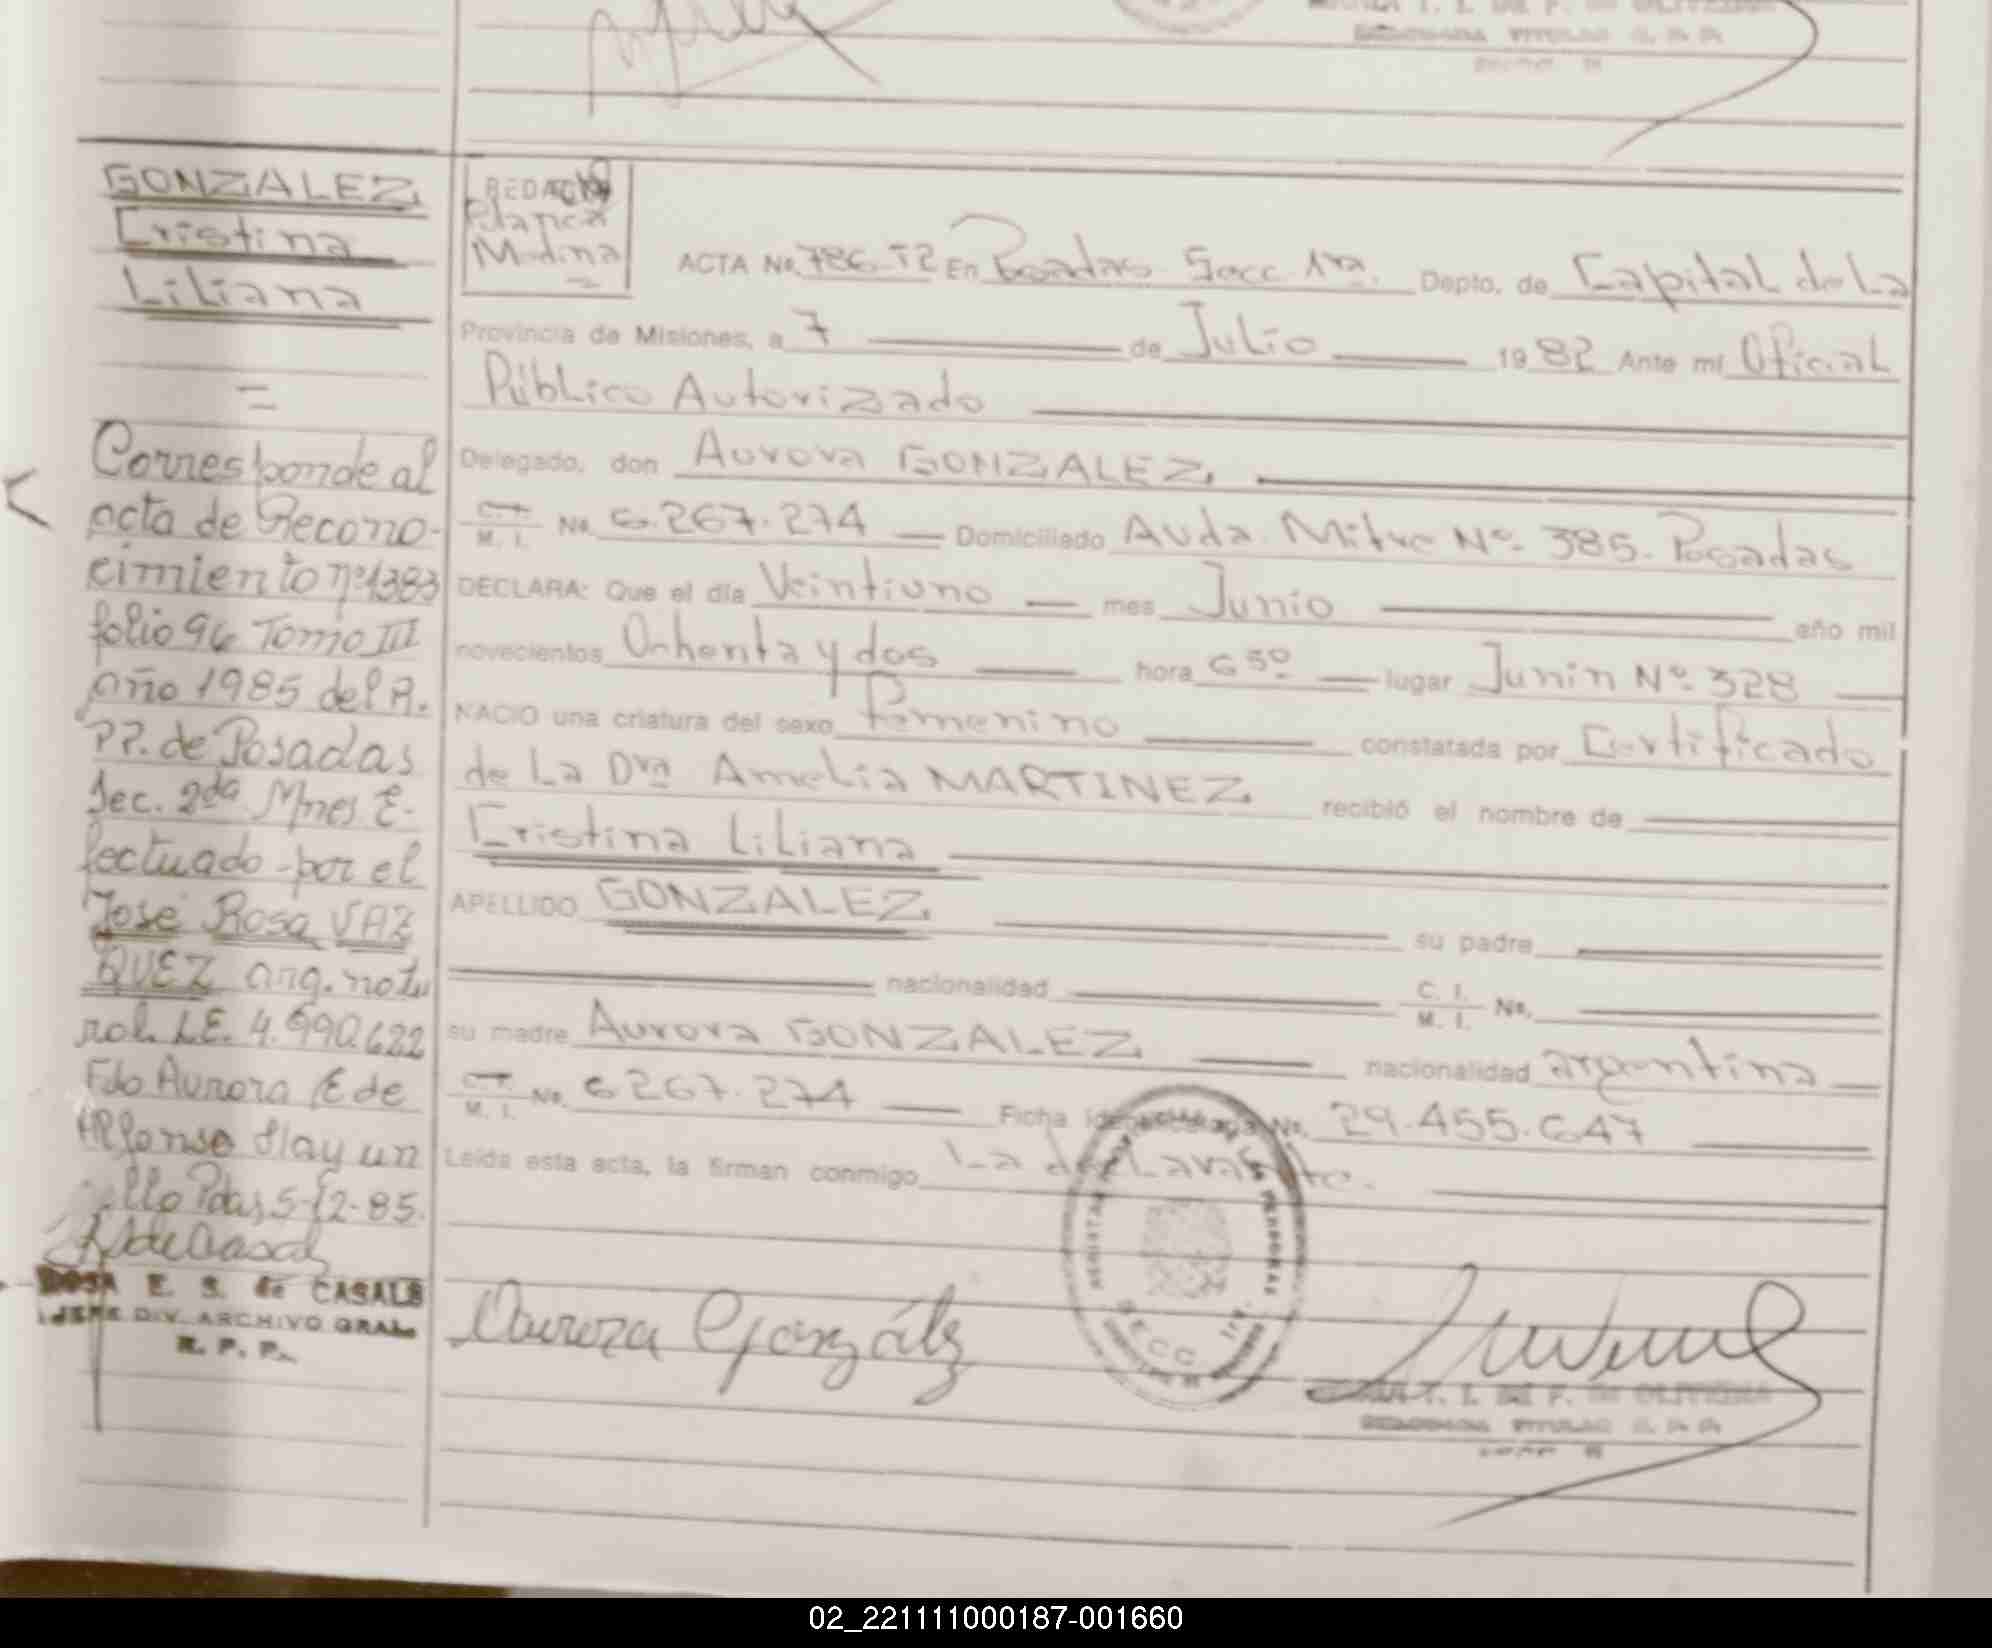 GONZALEZ
Cristina
Liliana
=
Corresponde al
acta de Recono-
cimiento nº1383
folio 94 Tomo III
año 1985 del R.
PP. de Posadas
Sec. 2da Mnes E-
fectuado por el
José Rosa VAZ
QUEZ arg. natu
ral. L.E. 4.990.622
Fdo Aurora E de
Alfonso Hay un
sello Pdas, 5-12-85.
ROSA E. S. de CASALS
JEFE DIV. ARCHIVO GRAL.
R. P. P.
REDACTÓ
Blanca
Medina
ACTA No. 786 T2 En Posadas Secc 1ra. Depto. de Capital de La
Provincia de Misiones, a 7 de Julio 1982 Ante mí Oficial
Público Autorizado
Delegado, don Aurora GONZALEZ
M. I. No. 6.267.274 Domiciliado Avda. Mitre Nº 385. Posadas
DECLARA: Que el día Veintiuno mes Junio año mil
novecientos Ochenta y dos hora 6 50 lugar Junin Nº 328
NACIO una criatura del sexo Femenino constatada por Certificado
de La Dra Amelia MARTINEZ recibió el nombre de
Cristina Liliana
APELLIDO GONZALEZ su padre
nacionalidad C. I. M. I. No.
su madre Aurora GONZALEZ nacionalidad argentina
M. I. No. 6 267.274 Ficha No. 29.455.647
Leída esta acta, la firman conmigo La declarante.
Aurora González
DE F. DE OLIVEIRA
TITULAR
02_221111000187-001660